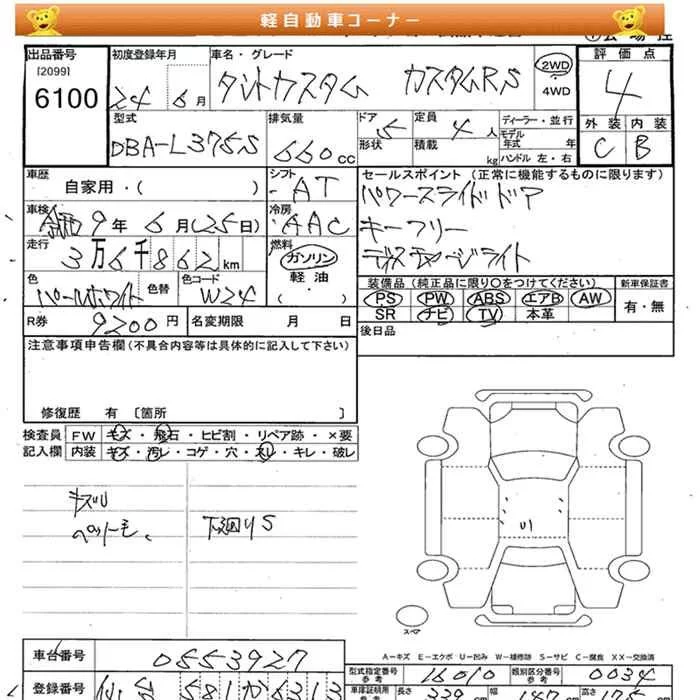 軽自動車コーナー
出品番号 初度登録年月 車名・グレード 評価点
[2099] タントカスタム カスタムRS 2WD
6100 24 6月 4WD 4
型式 排気量 ドア 定員 ディーラー・並行 外装 内装
DBA-L375S 660cc 5 4人 モデル年式 年 C B
形状 積載 kg ハンドル 左・右
車歴 シフト セールスポイント(正常に機能するものに限ります)
自家用・( ) AT パワースライドドア
車検 冷房 キーフリー
令和9年6月(25日) AAC ディスチャージライト
走行 燃料
3万6千862km ガソリン
色 色替 色コード 軽油 装備品(純正品に限り○をつけてください) 新車保証書
パールホワイト W24 (・) PS PW ABS エアB AW 有・無
R券 9200円 名変期限 月 日 SR ナビ TV 本革
注意事項申告欄(不具合内容等は具体的に記入して下さい) 後日品
修復歴 有 [箇所 ]
検査員 FW キズ・飛石・ヒビ割・リペア跡・×要
記入欄 内装 キズ・汚レ・コゲ・穴・スレ・キレ・破レ
キズU
ペット毛、 下廻りS
スペア
A-キズ E-エクボ U-凹み W-補修跡 S-サビ C-腐食 XX-交換済
車台番号 0553927
型式指定番号 16010 類別区分番号 0034
参考 参考
登録番号 仙台 581か5313
車庫証明用 長さ 339 cm 幅 147 cm 高さ